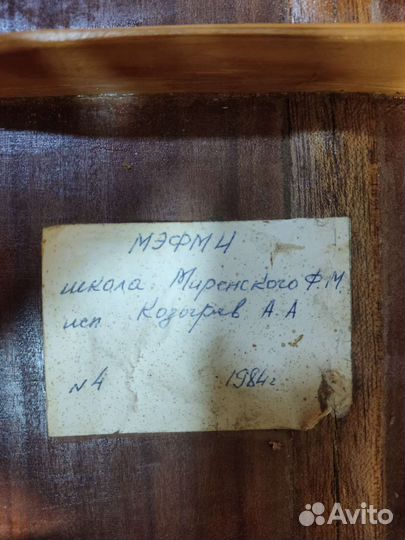 МЭФМИ
школа. Миренского Ф.М
исп Козырев А.А
№4 1984г
Avito